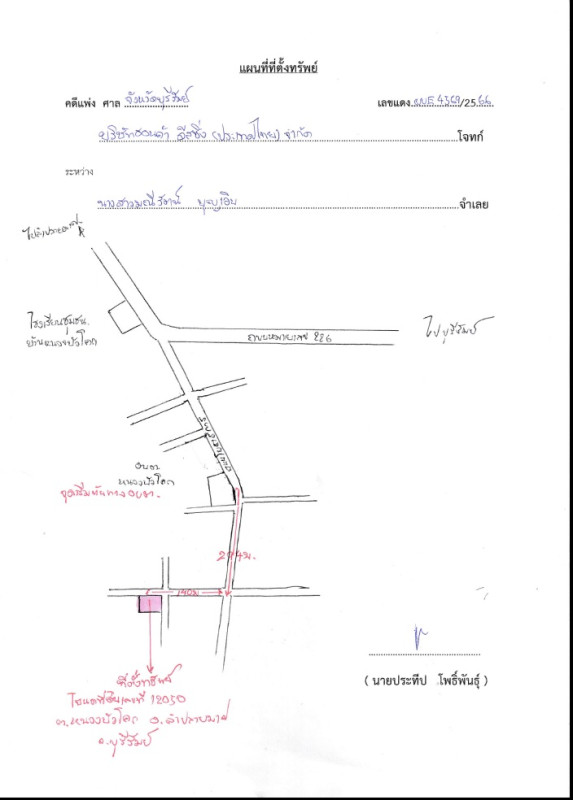 แผนที่ที่ตั้งทรัพย์
คดีแพ่ง ศาล จังหวัดบุรีรัมย์ เลขแดง ผบE 4369/2566
บริษัทฮอนด้า ลีสซิ่ง (ประเทศไทย) จำกัด โจทก์
ระหว่าง
นางสาวมณีรัตน์ จำเลย
โรงเรียนชุมชน
บ้านหนองบัวโคก
ถนนหมายเลข 226
ไปบุรีรัมย์
อบต.
หนองบัวโคก
จุดเริ่มต้นทาง อบต.
140ม
ที่ตั้งทรัพย์
โฉนดที่ดินเลขที่ 12050
ต.หนองบัวโคก อ.ลำปลายมาศ
จ.บุรีรัมย์
( นายประทีป โพธิ์พันธุ์ )